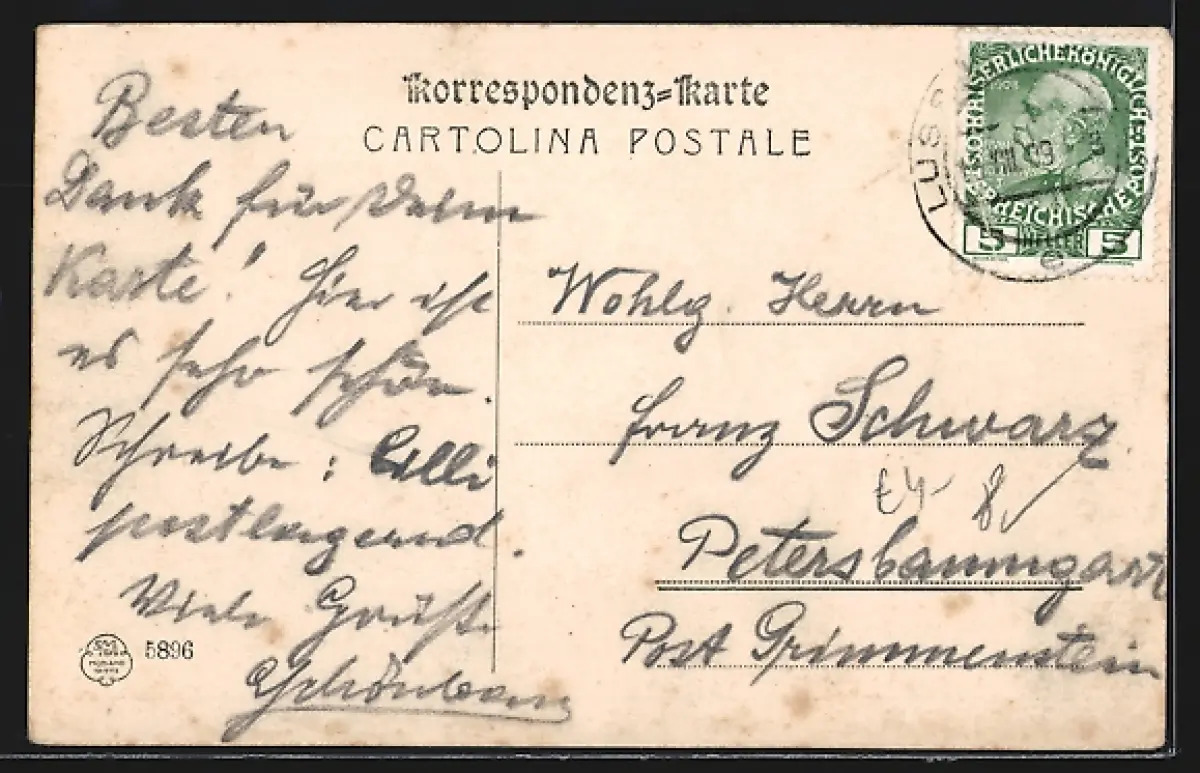 Korrespondenz=Karte
CARTOLINA POSTALE
Besten
Dank für
Karte! Hier ist
es sehr schön.
Schreibe: Cilli
postlagernd.
Viele Grüße
5896
KAISERLICHE KÖNIGLICHE ÖSTERREICHISCHE POST
1908
5 HELLER 5
LUSS
VIII 09
Wohlg. Herrn
Franz Schwarz
£4-
8
Petersbaumgart
Post Grimmenstein